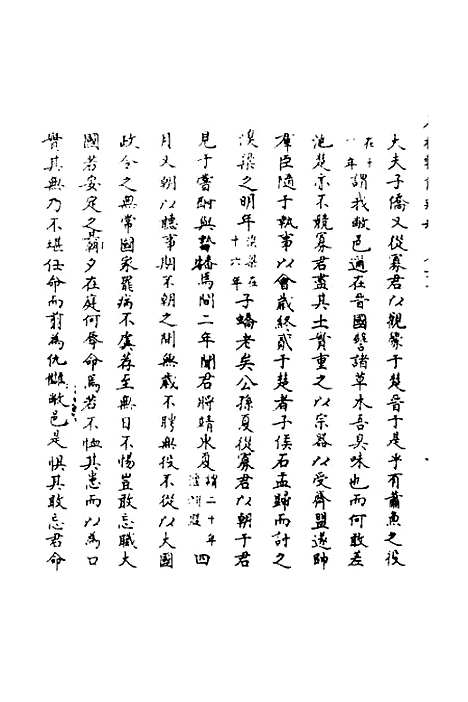 大夫子僑又從寡君以觀釁于楚晉于是乎有蕭魚之役
在十一年謂我敝邑邇在晉國譬諸草木吾臭味也而何敢差
池楚亦不競寡君盡其土實重之以宗器以受齊盟遂帥
群臣隨于執事以會歲終貳于楚者子侯石盂歸而討之
溴梁之明年溴梁在十六年子蟜老矣公孫夏從寡君以朝于君
見于嘗酎與執燔焉間二年聞君將靖東夏謂二十年澶淵盟四
月又朝以聽事期不朝之間無歲不聘無役不從以大國
政令之無常國家罷病不虞荐至無日不惕豈敢忘職大
國若安定之其朝夕在庭何辱命焉若不恤其患而以為口
實其無乃不堪任命而翦為仇讎敝邑是懼其敢忘君命